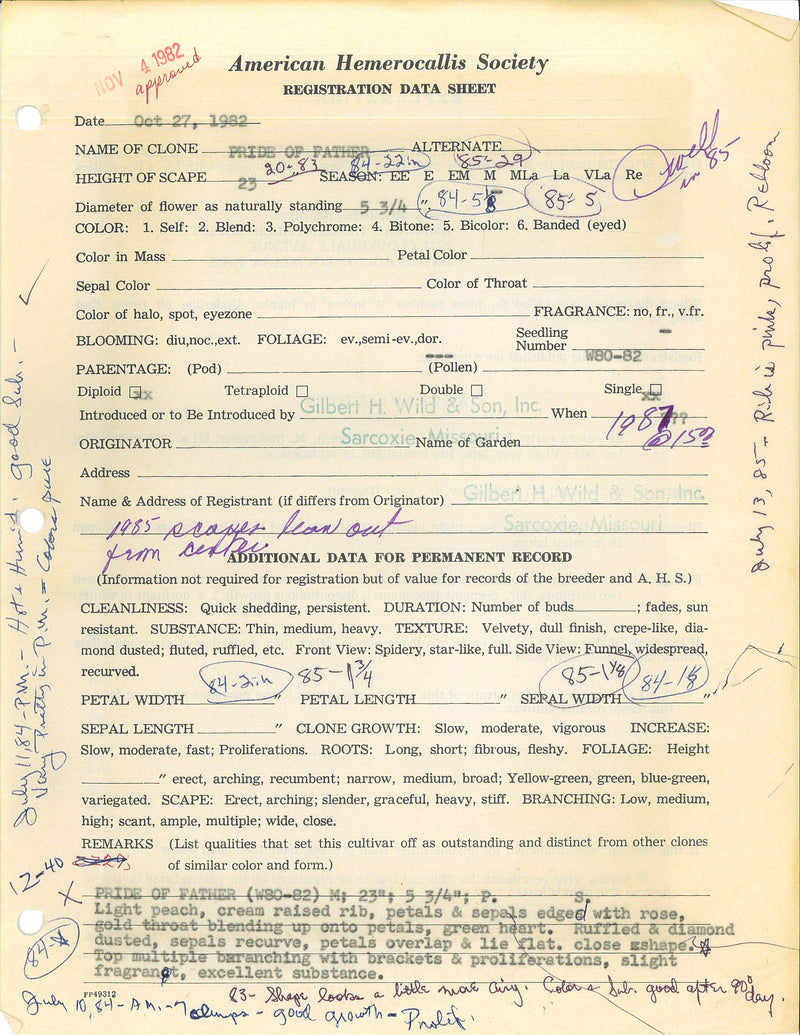 NOV 4 1982
approved
American Hemerocallis Society
REGISTRATION DATA SHEET
Date Oct 27, 1982
NAME OF CLONE PRIDE OF FATHER ALTERNATE
20-83 84-22in 85-29
HEIGHT OF SCAPE 23 SEASON: EE E EM M MLa La VLa Re
well in 85
Diameter of flower as naturally standing 5 3/4 " 84-5 85-5
COLOR: 1. Self: 2. Blend: 3. Polychrome: 4. Bitone: 5. Bicolor: 6. Banded (eyed)
Color in Mass Petal Color
Sepal Color Color of Throat
Color of halo, spot, eyezone FRAGRANCE: no, fr., v.fr.
BLOOMING: diu,noc.,ext. FOLIAGE: ev.,semi-ev.,dor. Seedling Number W80-82
PARENTAGE: (Pod) --- (Pollen)
Diploid xx Tetraploid Double Single xx
Introduced or to Be Introduced by Gilbert H. Wild & Son, Inc. When ???
1987 @ 15.00
Sarcoxie, Missouri
ORIGINATOR Name of Garden
Address
Name & Address of Registrant (if differs from Originator) Gilbert H. Wild & Son, Inc.
Sarcoxie, Missouri
1985 scapes lean out
from center
ADDITIONAL DATA FOR PERMANENT RECORD
(Information not required for registration but of value for records of the breeder and A. H. S.)
CLEANLINESS: Quick shedding, persistent. DURATION: Number of buds ; fades, sun
resistant. SUBSTANCE: Thin, medium, heavy. TEXTURE: Velvety, dull finish, crepe-like, dia-
mond dusted; fluted, ruffled, etc. Front View: Spidery, star-like, full. Side View: Funnel, widespread,
recurved.
84-2in 85-1 3/4 85-1 1/8 84-1 1/8
PETAL WIDTH " PETAL LENGTH " SEPAL WIDTH ",
SEPAL LENGTH " CLONE GROWTH: Slow, moderate, vigorous INCREASE:
Slow, moderate, fast; Proliferations. ROOTS: Long, short; fibrous, fleshy. FOLIAGE: Height
" erect, arching, recumbent; narrow, medium, broad; Yellow-green, green, blue-green,
variegated. SCAPE: Erect, arching; slender, graceful, heavy, stiff. BRANCHING: Low, medium,
high; scant, ample, multiple; wide, close.
REMARKS (List qualities that set this cultivar off as outstanding and distinct from other clones
of similar color and form.)
12-40
X PRIDE OF FATHER (W80-82) M; 23"; 5 3/4"; P. S.
Light peach, cream raised rib, petals & sepals edged with rose,
gold throat blending up onto petals, green heart. Ruffled & diamond
dusted, sepals recurve, petals overlap & lie flat. close shape.
Top multiple branching with brackets & proliferations, slight
fragrant, excellent substance.
84-
FP49312
83- Shape looks a little more airy. Color & Sub. good after 90° day.
July 10, 84- A.M. - 7 clumps - good growth - Prolif.
July 11, 84- P.M. - Hot & Humid: good Sub. -
Very Pretty in P.M. = Colors pure
July 13, 85 = Rib is pink, prolif.